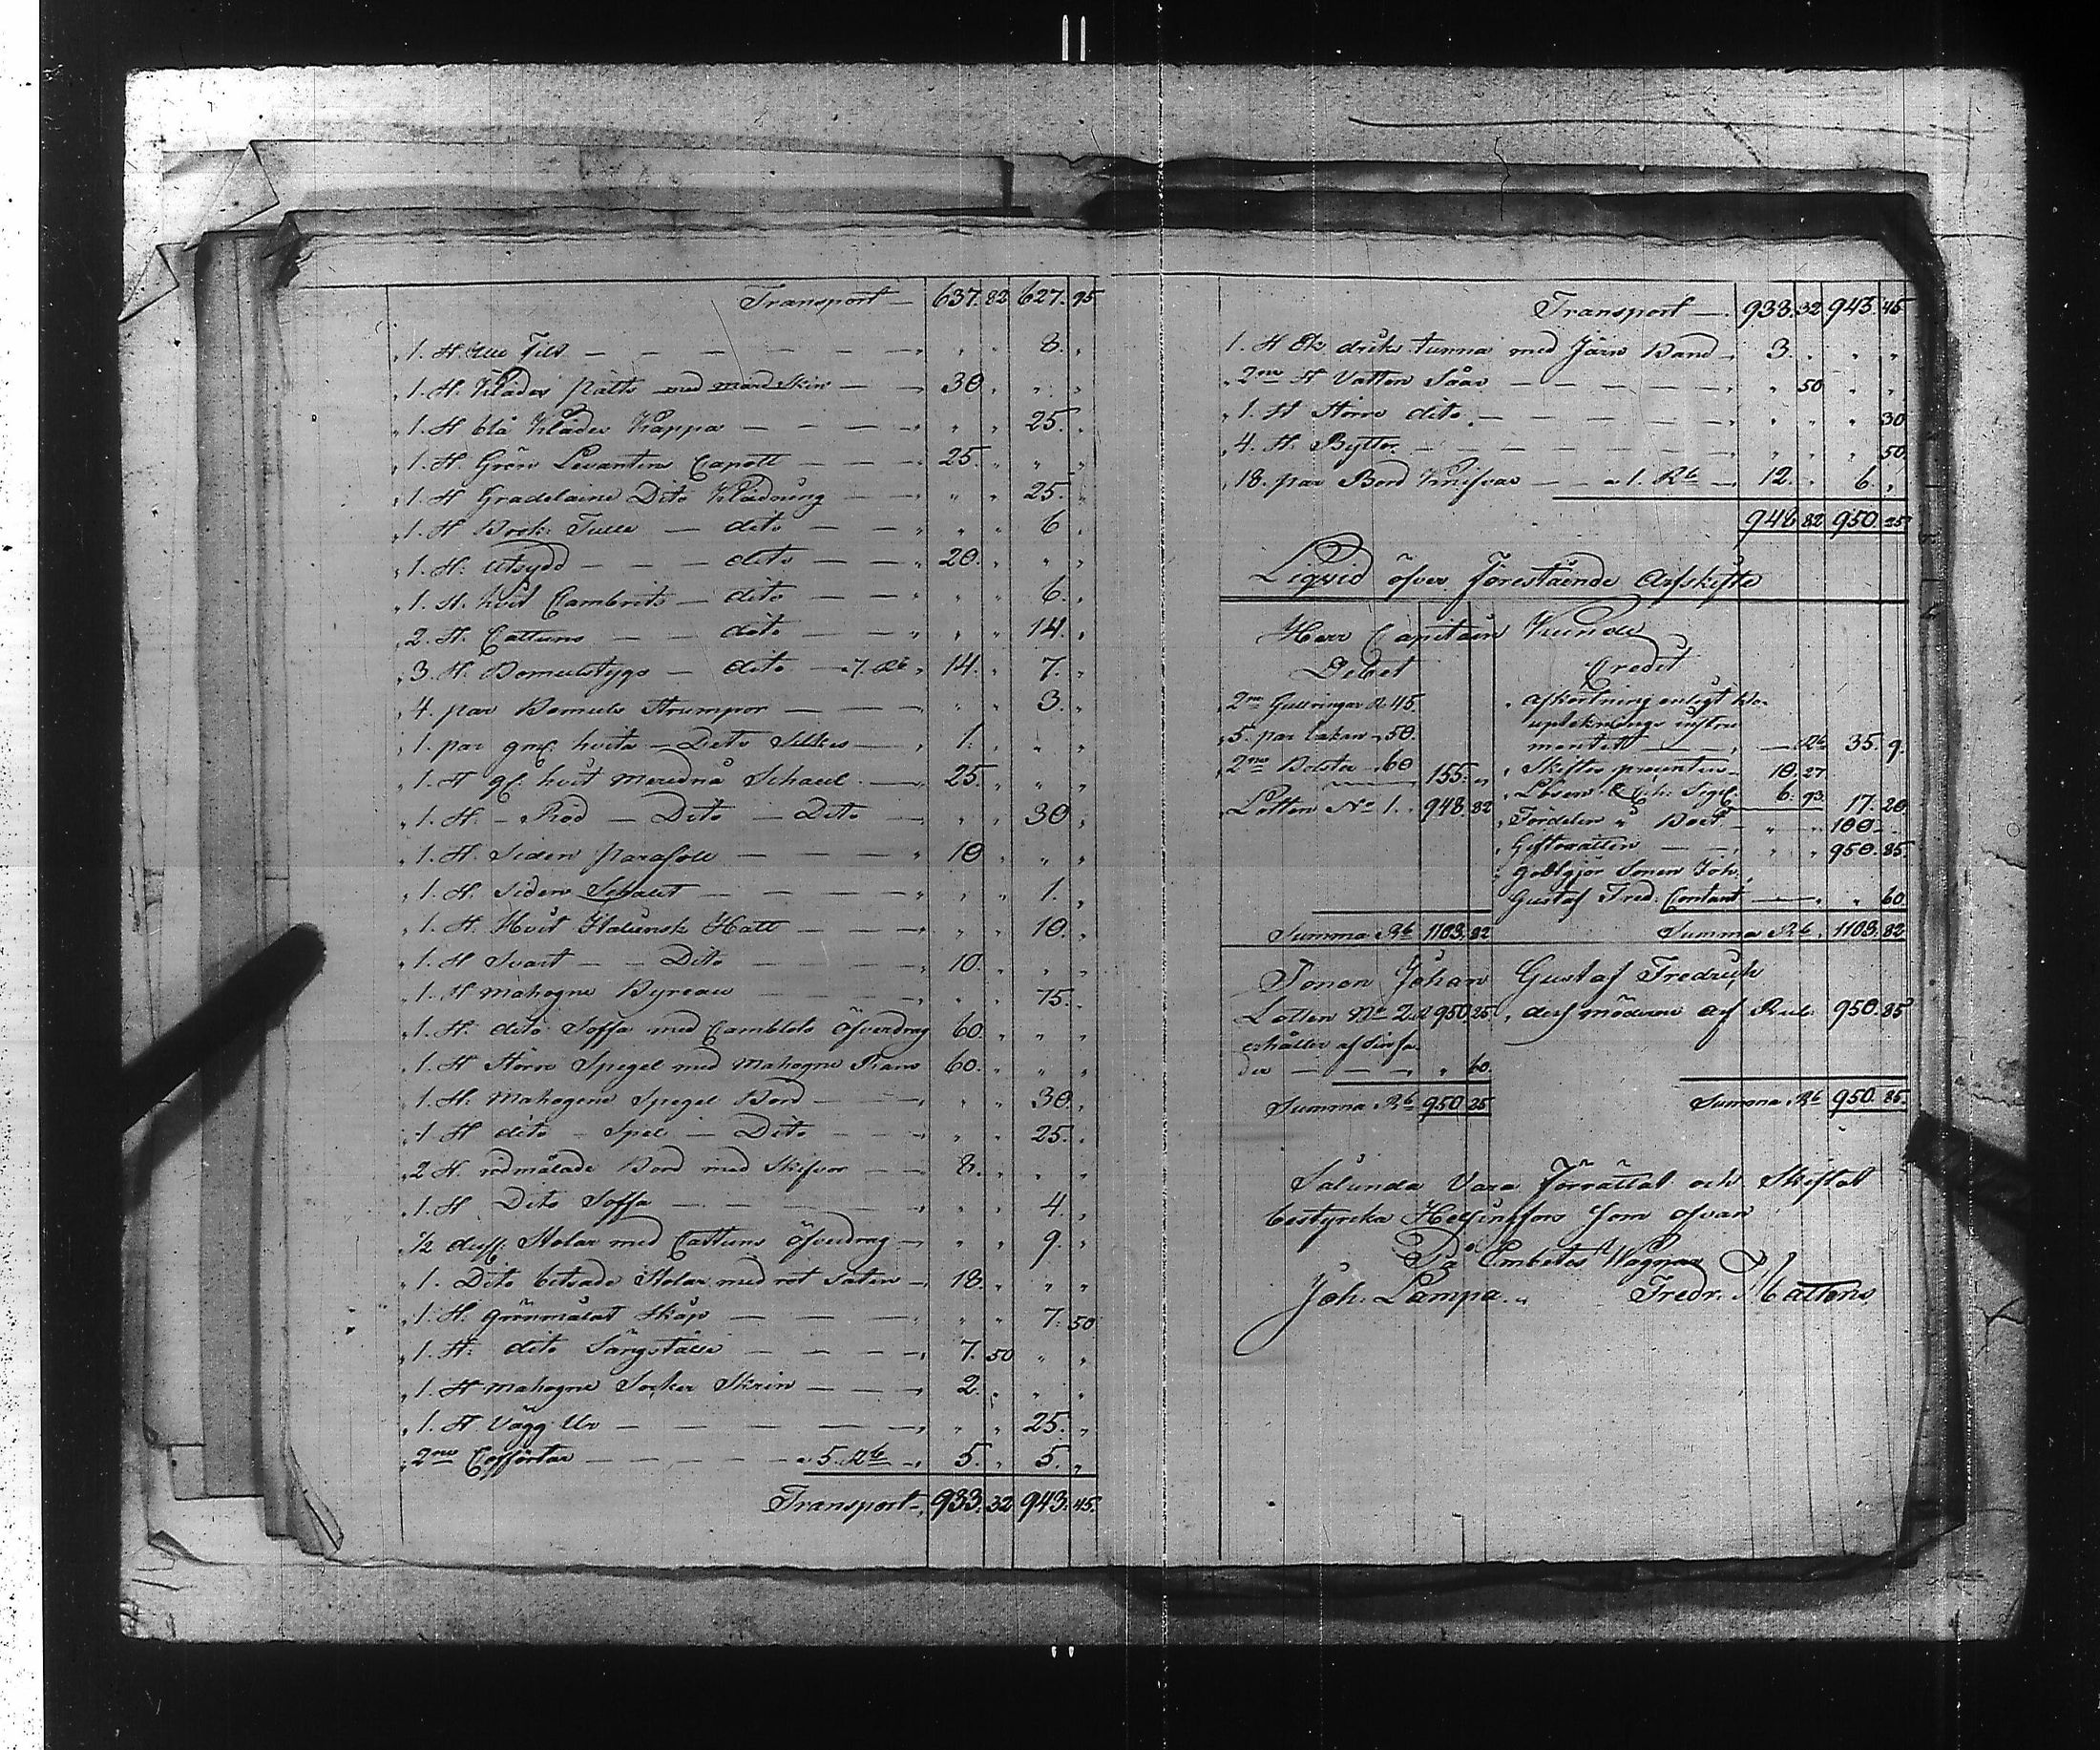 Transport — 637. 82 627. 95
„ 1. St. Ulle Filt — — — „ „ 8. „
„ 1. St. Klädes pälts med mård Skin — 30. „ „ „
„ 1. St blå Klädes Kappa — — — „ „ 25. „
„ 1. St. Grön Levantins Capott — — 25. „ „ „
„ 1. St Gradelaine Dito Klädning — — „ „ 25. „
„ 1. St Bock. Tulls — dito — „ „ 6 „
„ 1. St. utsydd — — dito — — 20. „ „ „
„ 1. St. hvit Cambrits — dito — — „ „ 6. „
„ 2. St. Cattuns — — dito — — „ „ 14. „
„ 3. St. Bomulstygs — dito — 7. Rb „ 14. „ 7. „
„ 4. par Bomuls Strumpor — — — „ „ 3. „
„ 1. par gml. hvita — Dito Silkes — „ 1. „ „ „
„ 1. St gl. hvit Merinå Schavl — 25. „ „ „
„ 1. St. — Röd — Dito — Dito — „ „ 30 „
„ 1. St. Siden parasoll — — — „ 10 „ „ „
„ 1. St. Siden Schalet — — — „ „ 1. „
„ 1. St. Hvit Italiensk Hatt — — — „ „ 10. „
„ 1. St Svart — — Dito — — 10. „ „ „
„ 1. St Mahogne Byreau — — — „ „ 75. „
„ 1. St. dito Soffa med Camblots öfverdrag 60. „ „ „
„ 1. St Större Spegel med Mahogne Ram 60. „ „ „
„ 1. St. Mahogene Spegel Bord — — „ „ 30. „
„ 1. St dito — Spel — Dito — — „ „ 25. „
„ 2 St. rödmålade Bord med Skifvor — — 8. „ „ „
„ 1. St Dito Soffa — — — „ „ 4. „
„ ½ duss. Stolar med Cattuns öfverdrag — „ „ 9. „
„ 1. Dito betsade Stolar med rot säten — 18. „ „ „
„ 1. St. grönmålat Skåp — — — „ „ 7. 50
„ 1. St. dito Sängställe — — — „ 7. 50 „ „
„ 1. St Mahogne Socker Skrin — — 2. „ „ „
„ 1. St. Vägg Ur — — — — „ „ 25. „
„ 2ne Coffortar — — — — a 5. Rb „ 5. „ 5. „
Transport — 933. 32 943. 45.
Transport — 933. 32 943. 45
1. St Ek dricks tunna med Järn Band „ 3. „ „ „
„ 2ne St Vatten Såar — — — — „ 50 „ „
„ 1. St Större dito — — — — „ „ „ 30
„ 4. St. Byttor — — — — „ „ „ 50
„ 18. par Bord Knifvar — — a 1. Rb — 12. „ 6. „
948 82 950. 25
Liqvid öfver Förestående Arfskifte
Herr Capitain
Debet Credit
„ 2ne Gullringar R. 45 „ Afkortning enligt Bo-
uptecknings instru-
„ 5. par lakan „ 50. mentet — — „ — Rb 35. 9.
„ 2ne Bolstar „ 60 155. „ „ Skiftes procenten — 10. 27.
„ Lösen & Ch. Sigl. 6. 93. 17. 20.
„ Lotten No 1. „ 948. 82 „ Fördelen Boet — „ „ 100 — „
„ Giftorätten — — „ „ 950. 85.
„ Godtgjör Sonen Joh.
Gustaf Fred. Contant — — „ „ 60.
Summa Rb 1103. 82 Summa Rb. 1103. 82
Sonen Johan Gustaf Fredrick
Lotten No 2. R 950. 25 „ Arf möderne af Rub. 950. 85
erhåller af Sin fa-
der — — — „ 60.
Summa Rb 950 25 Summa Rb 950. 85.
Sålunda Vara Förrättat och Skiftat
bestyrka Helsingfors som ofvan
På Embetes Wägnar
Joh. Lampa. Fredr.